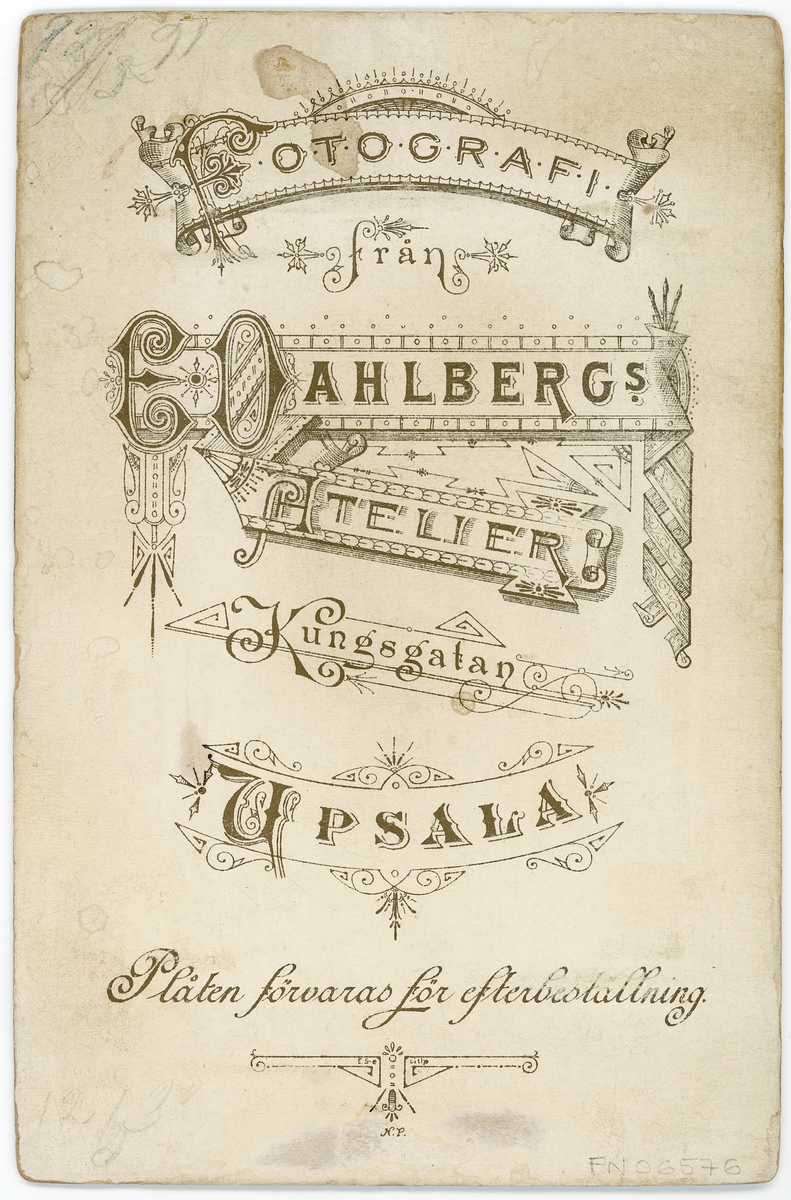 FOTOGRAFI.
från
E DAHLBERGS
ATELIER
Kungsgatan
UPSALA
Plåten förvaras för efterbeställning.
N.P.
FN06576